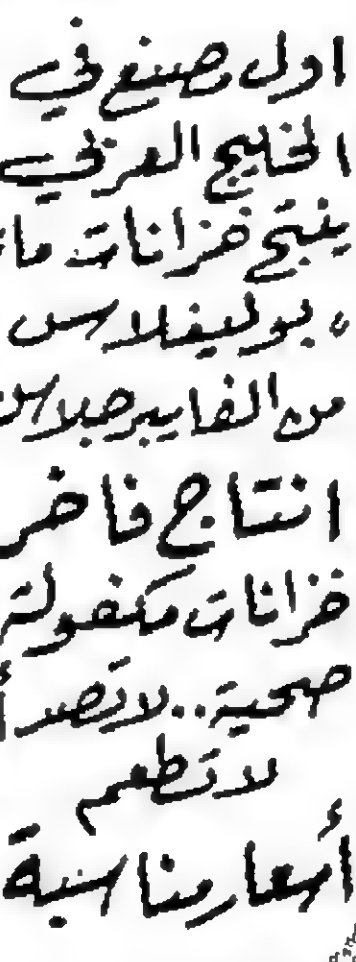 اول مصنع في
الخليج العربي
ينتج خزانات ماء
" بوليغلاس "
من الفايبرجلاس
انتاج فاخر
خزانات مكفولة
صحية.. لا تصدأ
لا تطعم
أسعار مناسبة